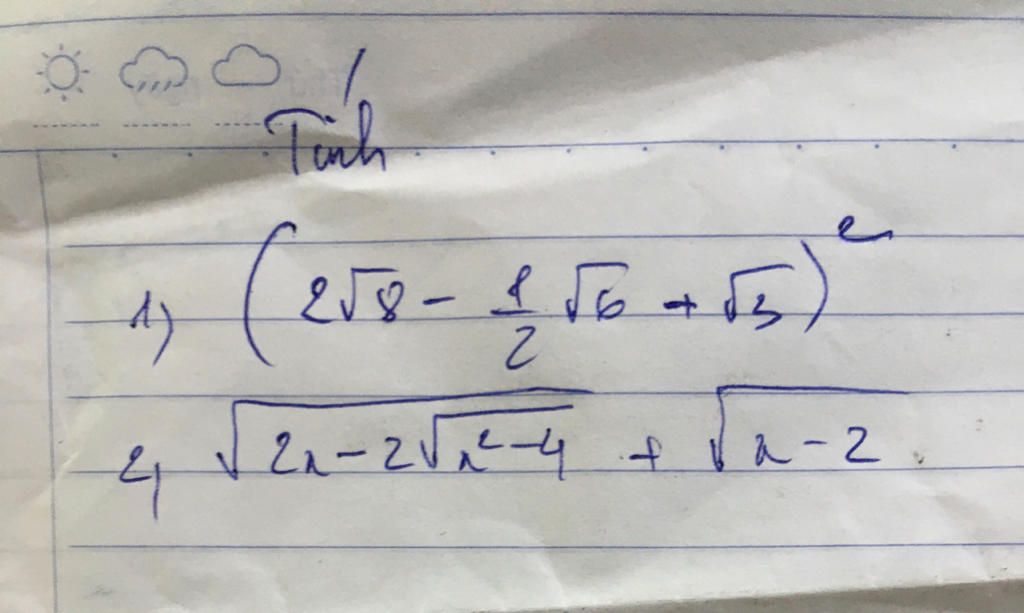 Tính
1) (2√8 - 1/2 √6 + √3)²
2, √(2x - 2√(x² - 4)) + √(x - 2)